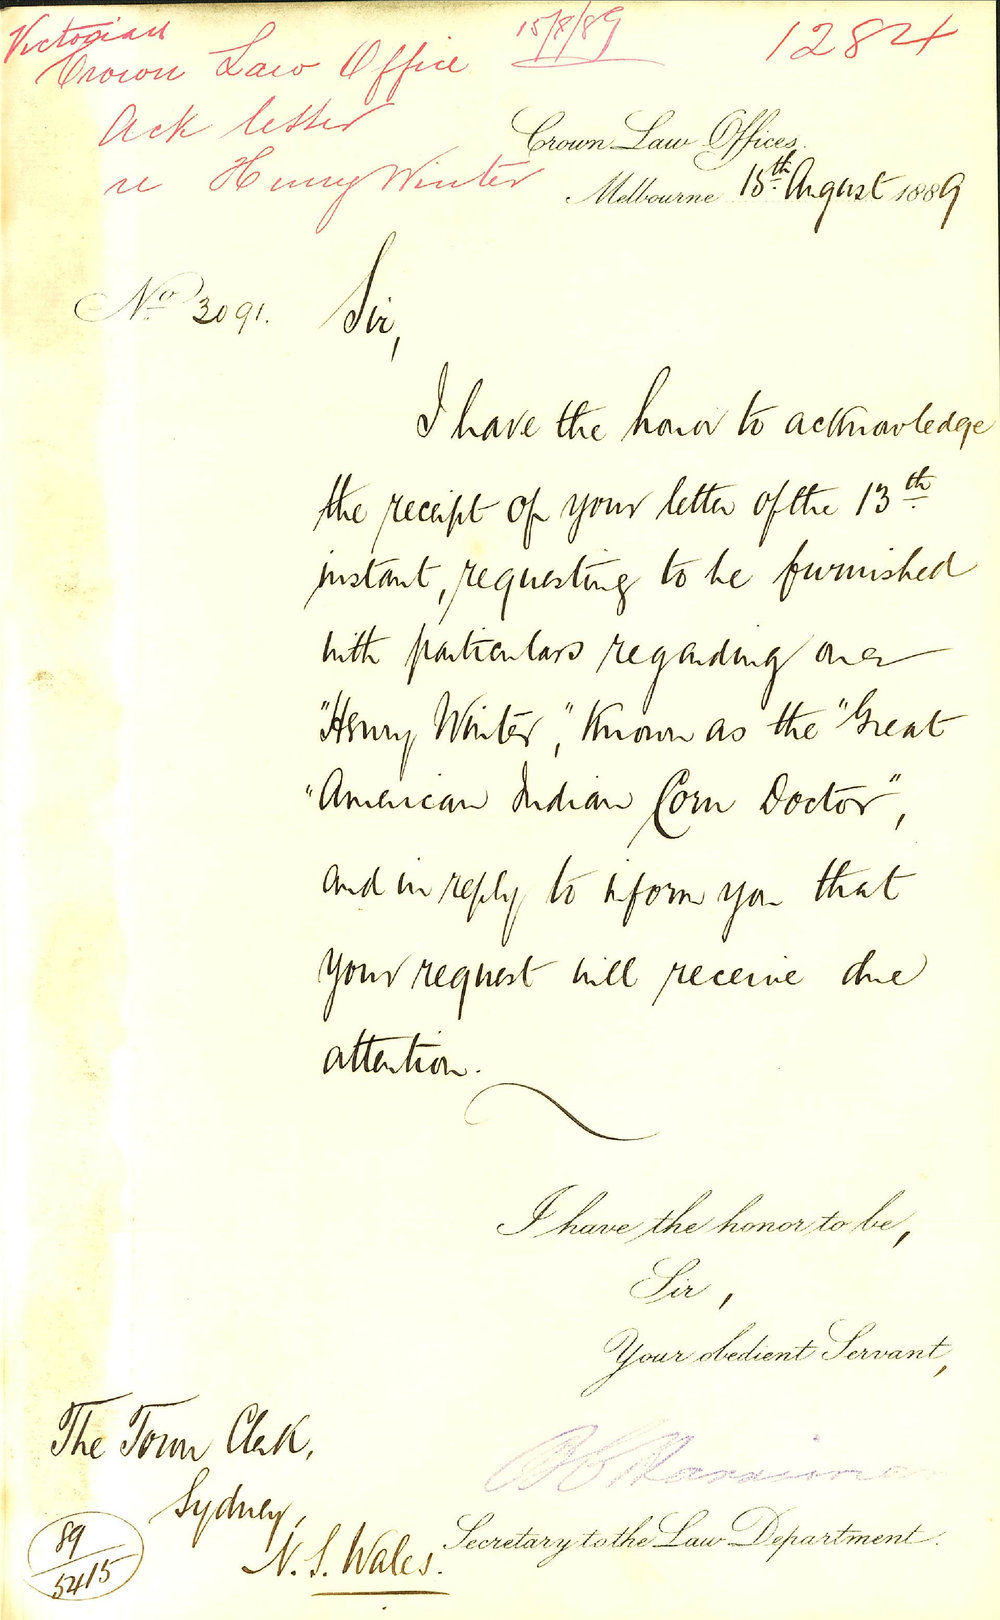 Victorian 15/8/89 1284
Crown Law Office
Ack letter
re Henry Winter
Crown Law Offices.
Melbourne 15th August 1889
No. 3091.
Sir,
I have the honor to acknowledge
the receipt of your letter of the 13th
instant, requesting to be furnished
with particulars regarding one
"Henry Winter," known as the "Great
"American Indian Corn Doctor",
and in reply to inform you that
your request will receive due
attention.
I have the honor to be,
Sir,
Your obedient Servant,
Secretary to the Law Department.
The Town Clerk,
Sydney,
N. S. Wales.
89
5415